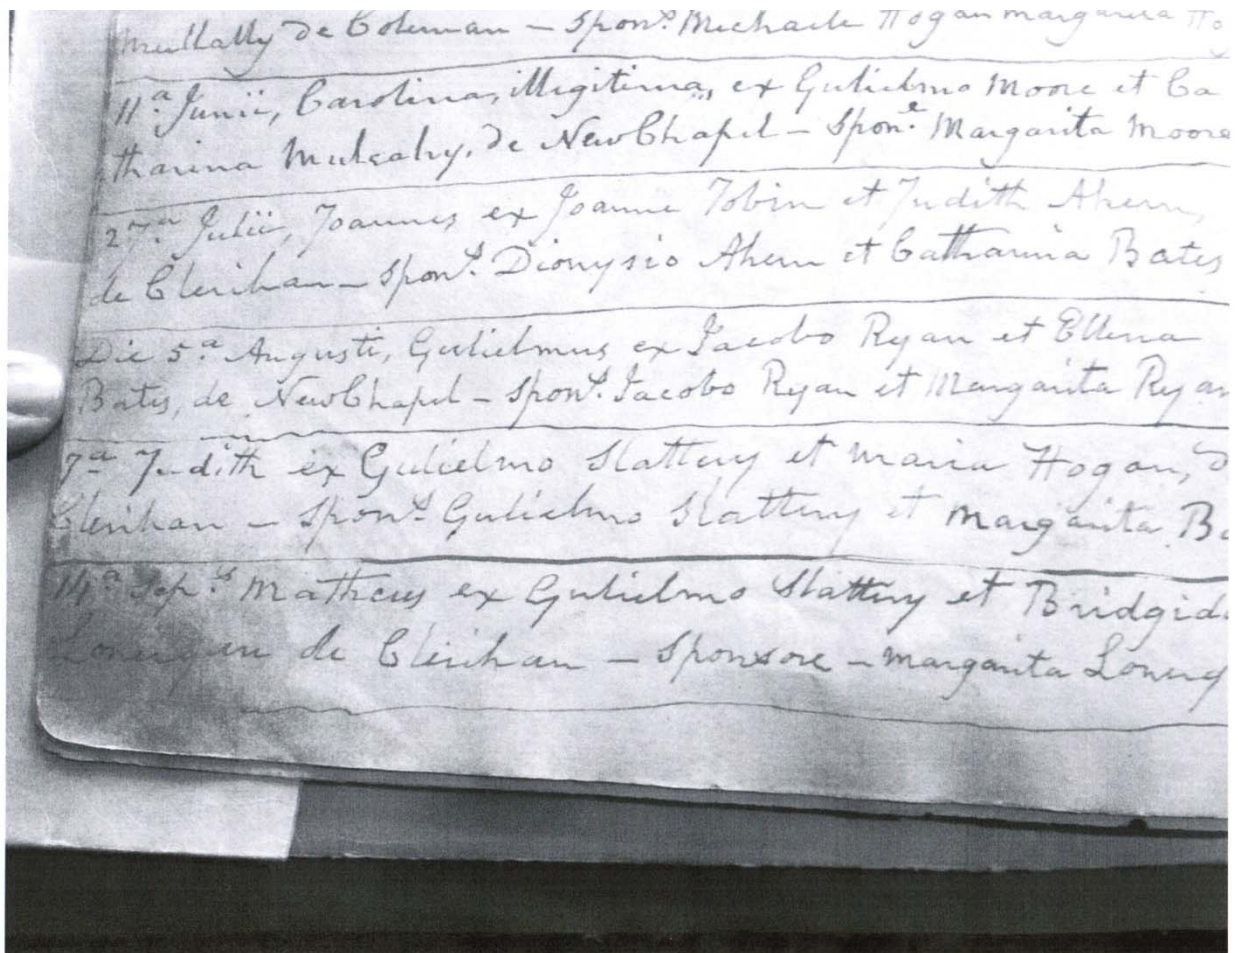 Mullally de Coleman – Spon.s Michaele Hogan Margarita Ho
11.a Junii, Carolina, illigitima, ex Gulielmo Moore et Ca
tharina Mulcahy, de New Chapel – Spon.e Margarita Moore
27.a Julii, Joannes ex Joanne Tobin et Judith Ahern,
de Clerihan – Spon.s Dionysio Ahern et Catharina Bates
Die 5.a Augusti, Gulielmus ex Jacobo Ryan et Ellena
Bates, de New Chapel – Spon.s Jacobo Ryan et Margarita Ryan
7.a Judith ex Gulielmo Slattery et Maria Hogan, d
Clerihan – Spon.s Gulielmo Slattery et Margarita Ba
14.a Sep.s Matheus ex Gulielmo Slattery et Bridgida
Lonergan de Clerihan – Sponsore – Margarita Lonerg